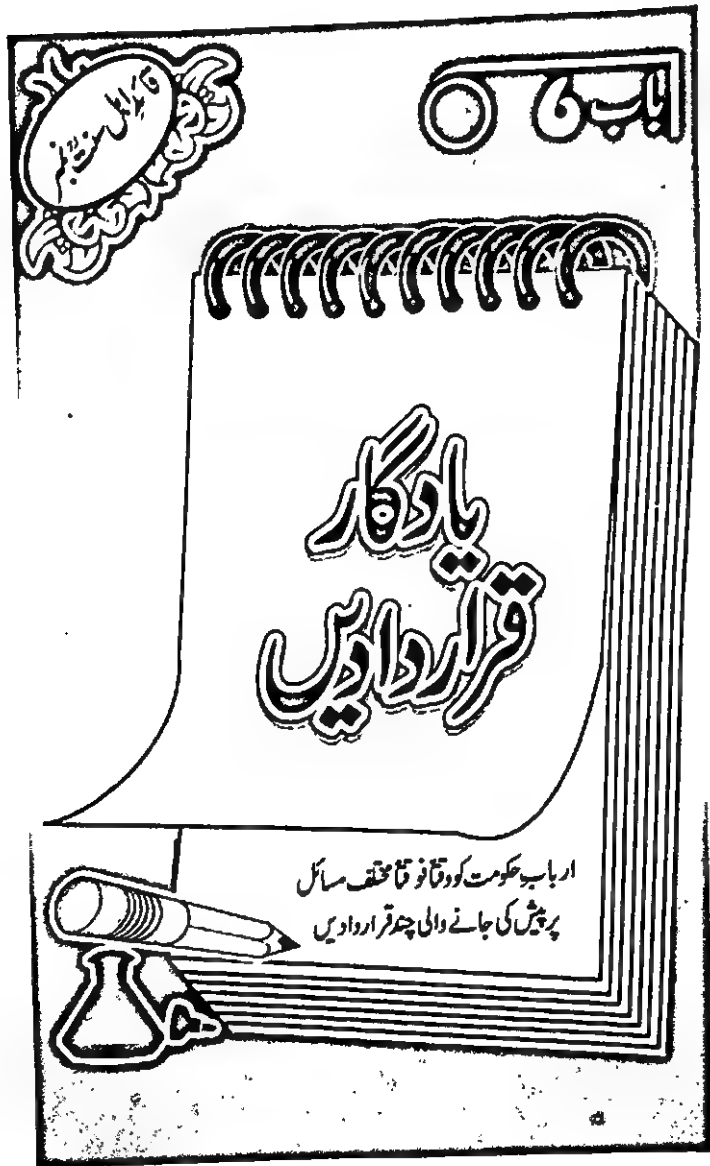 باب 6
قائدِ اہل سنتؒ نمبر
یادگار
قراردادیں
اربابِ حکومت کو وقتاً فوقتاً مختلف مسائل
پر پیش کی جانے والی چند قراردادیں